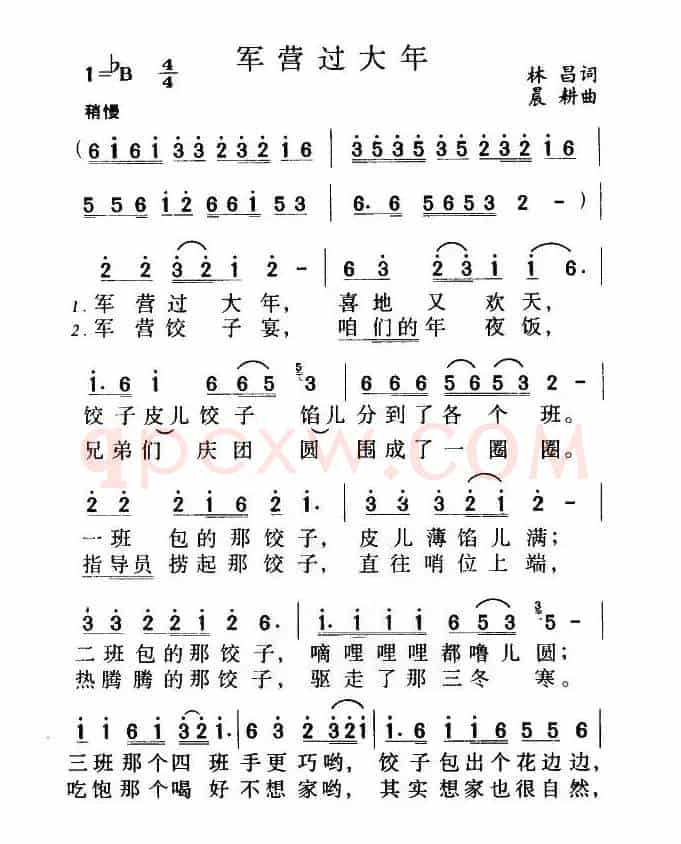 军营过大年
1=♭B 4/4
林昌词
晨耕曲
稍慢
(6161 3323216 | 3535352532 16
55612661 53 | 6. 6 5653 2 -) |
2 2 3212 2 - | 63 2312 1 6.
1.军营过大年, 喜地又欢天,
2.军营饺子宴, 咱们的年夜饭,
1.6 1 665 3 | 666 5653 2 -
饺子皮儿饺子 馅儿分到了各个班。
兄弟们庆团圆 围成了一圈圈。
22 2162 1. | 33 3212 2 -
一班包的那饺子, 皮儿薄馅儿满;
指导员捞起那饺子, 直往哨位上端,
33 22126. | 1.111 653 5 -
二班包的那饺子, 嘀哩哩哩都噜儿圆;
热腾腾的那饺子, 驱走了那三冬寒。
11 61 321. | 63 2321 | 1.6 1161 556
三班那个四班手更巧哟, 饺子包出个花边边,
吃饱那个喝好不想家哟, 其实想家也很自然,
qpcxw.COM